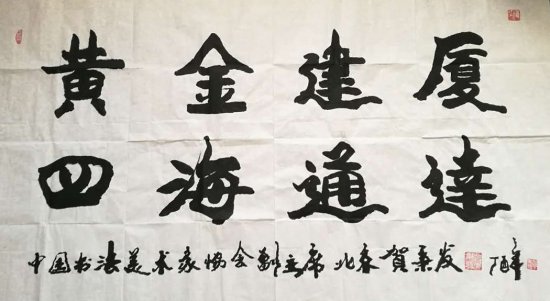 黄金建厦
四海通達
中国书法美术家协会副主席 北春贺